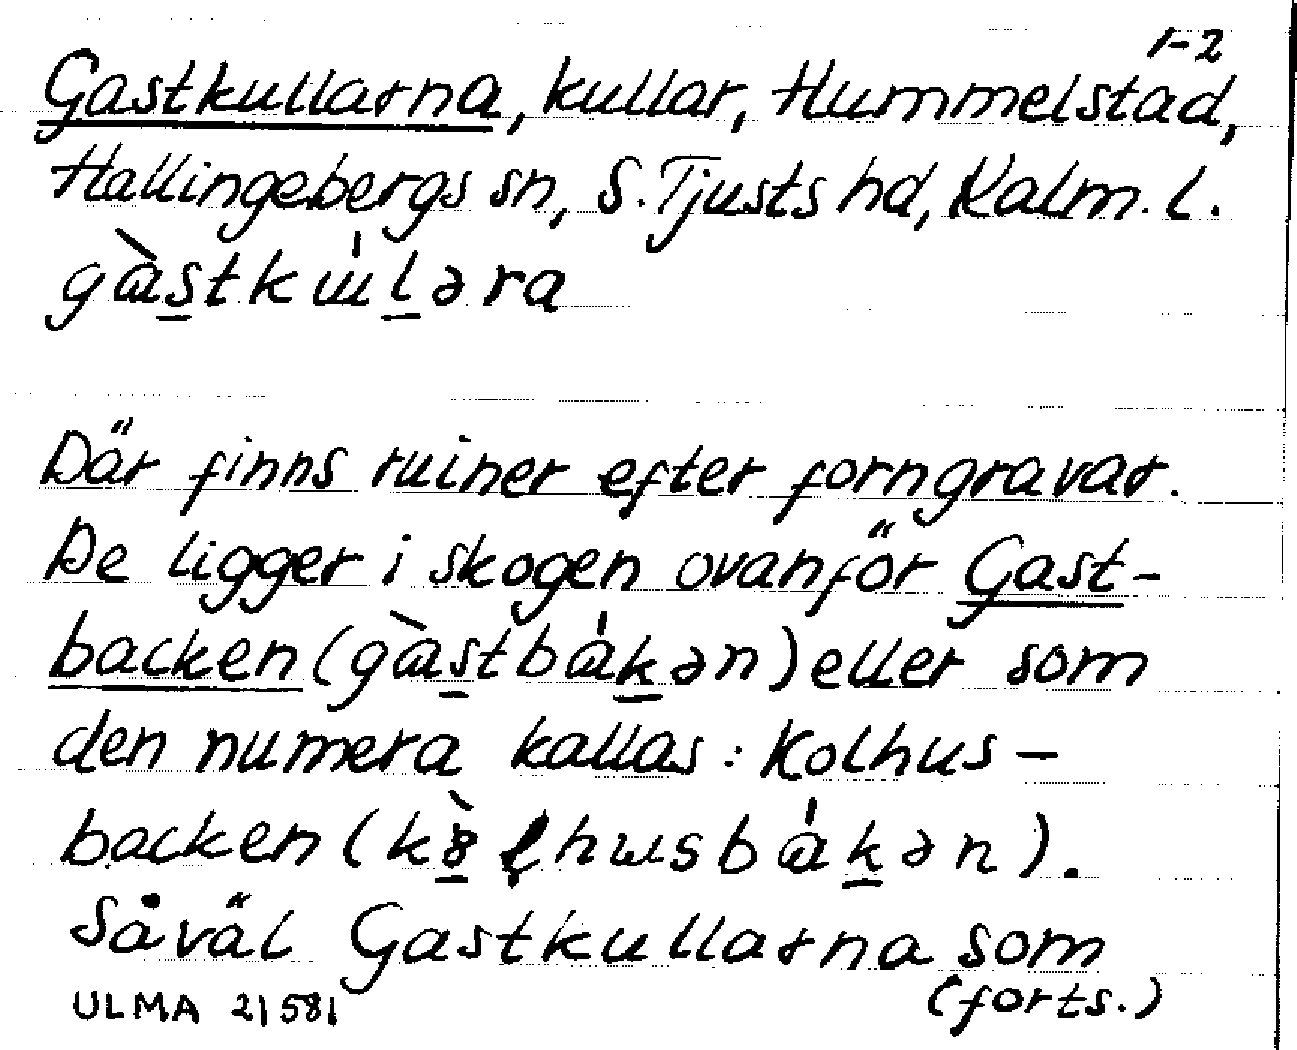 1-2
Gastkullarna, kullar, Hummelstad,
Hallingebergs sn, S. Tjusts hd, Kalm. l.
gàs̲tkɯ́l̲əra
Där finns ruiner efter forngravar.
De ligger i skogen ovanför Gast-
backen (gàs̲tbák̲ən) eller som
den numera kallas: Kolhus-
backen (                ).
Såväl Gastkullarna som
(forts.)
ULMA 21581